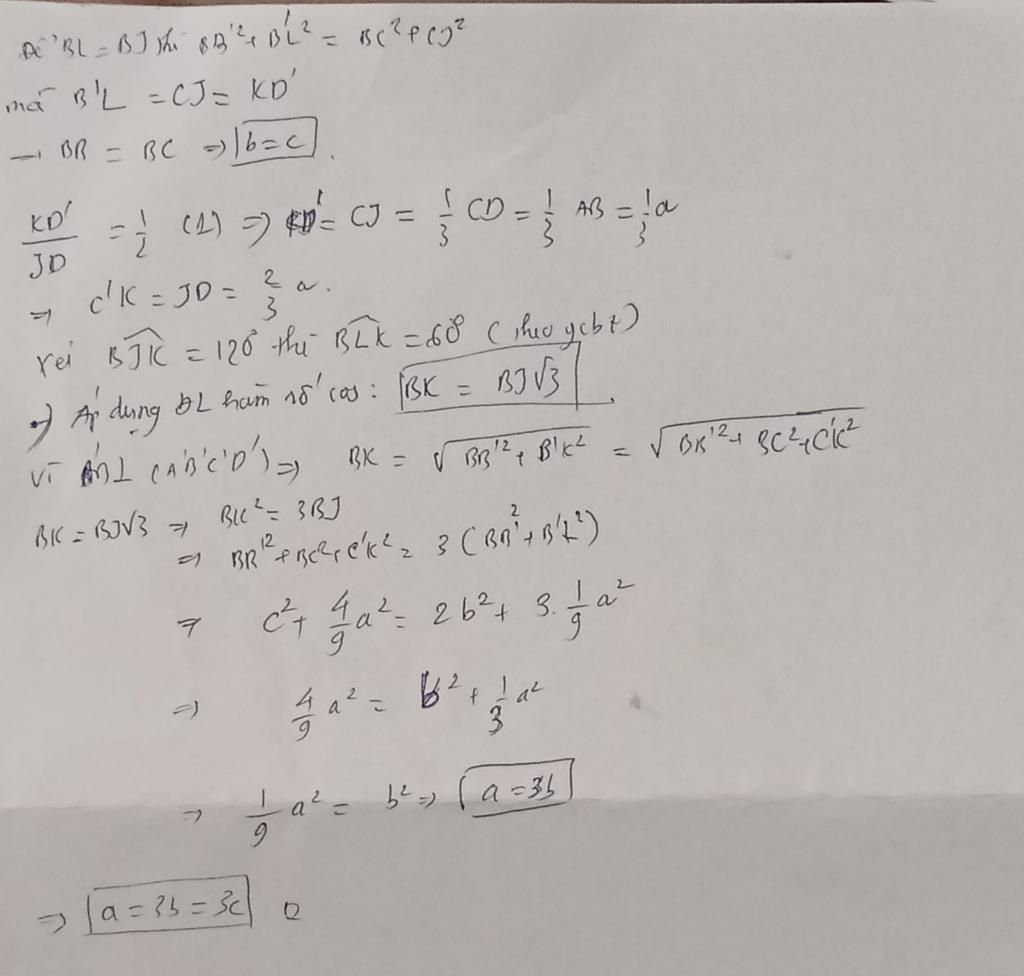 Để BL = BJ thì BB'² + B'L² = BC² + CJ²
mà B'L = CJ = KD'
→ BB = BC ⇒ b = c.
KD'/JD = 1/2 (1) ⇒ KD' = CJ = 1/3 CD = 1/3 AB = 1/3 a
⇒ C'K = JD = 2/3 a.
BJK = 120° thì BLK = 60° (theo ycbt)
⇒ Áp dụng ĐL hàm số cos: BK = BJ√3.
Vì ⊥ (A'B'C'D') ⇒ BK = √BB'² + B'K² = √BB'² + BC² + C'K²
BK = BJ√3 ⇒ BK² = 3BJ
⇒ BB'² + BC² + C'K² = 3(BB'² + B'L²)
⇒ c² + 4/9 a² = 2b² + 3. 1/9 a²
⇒ 4/9 a² = b² + 1/3 a²
⇒ 1/9 a² = b² ⇒ a = 3b
⇒ a = 3b = 3c